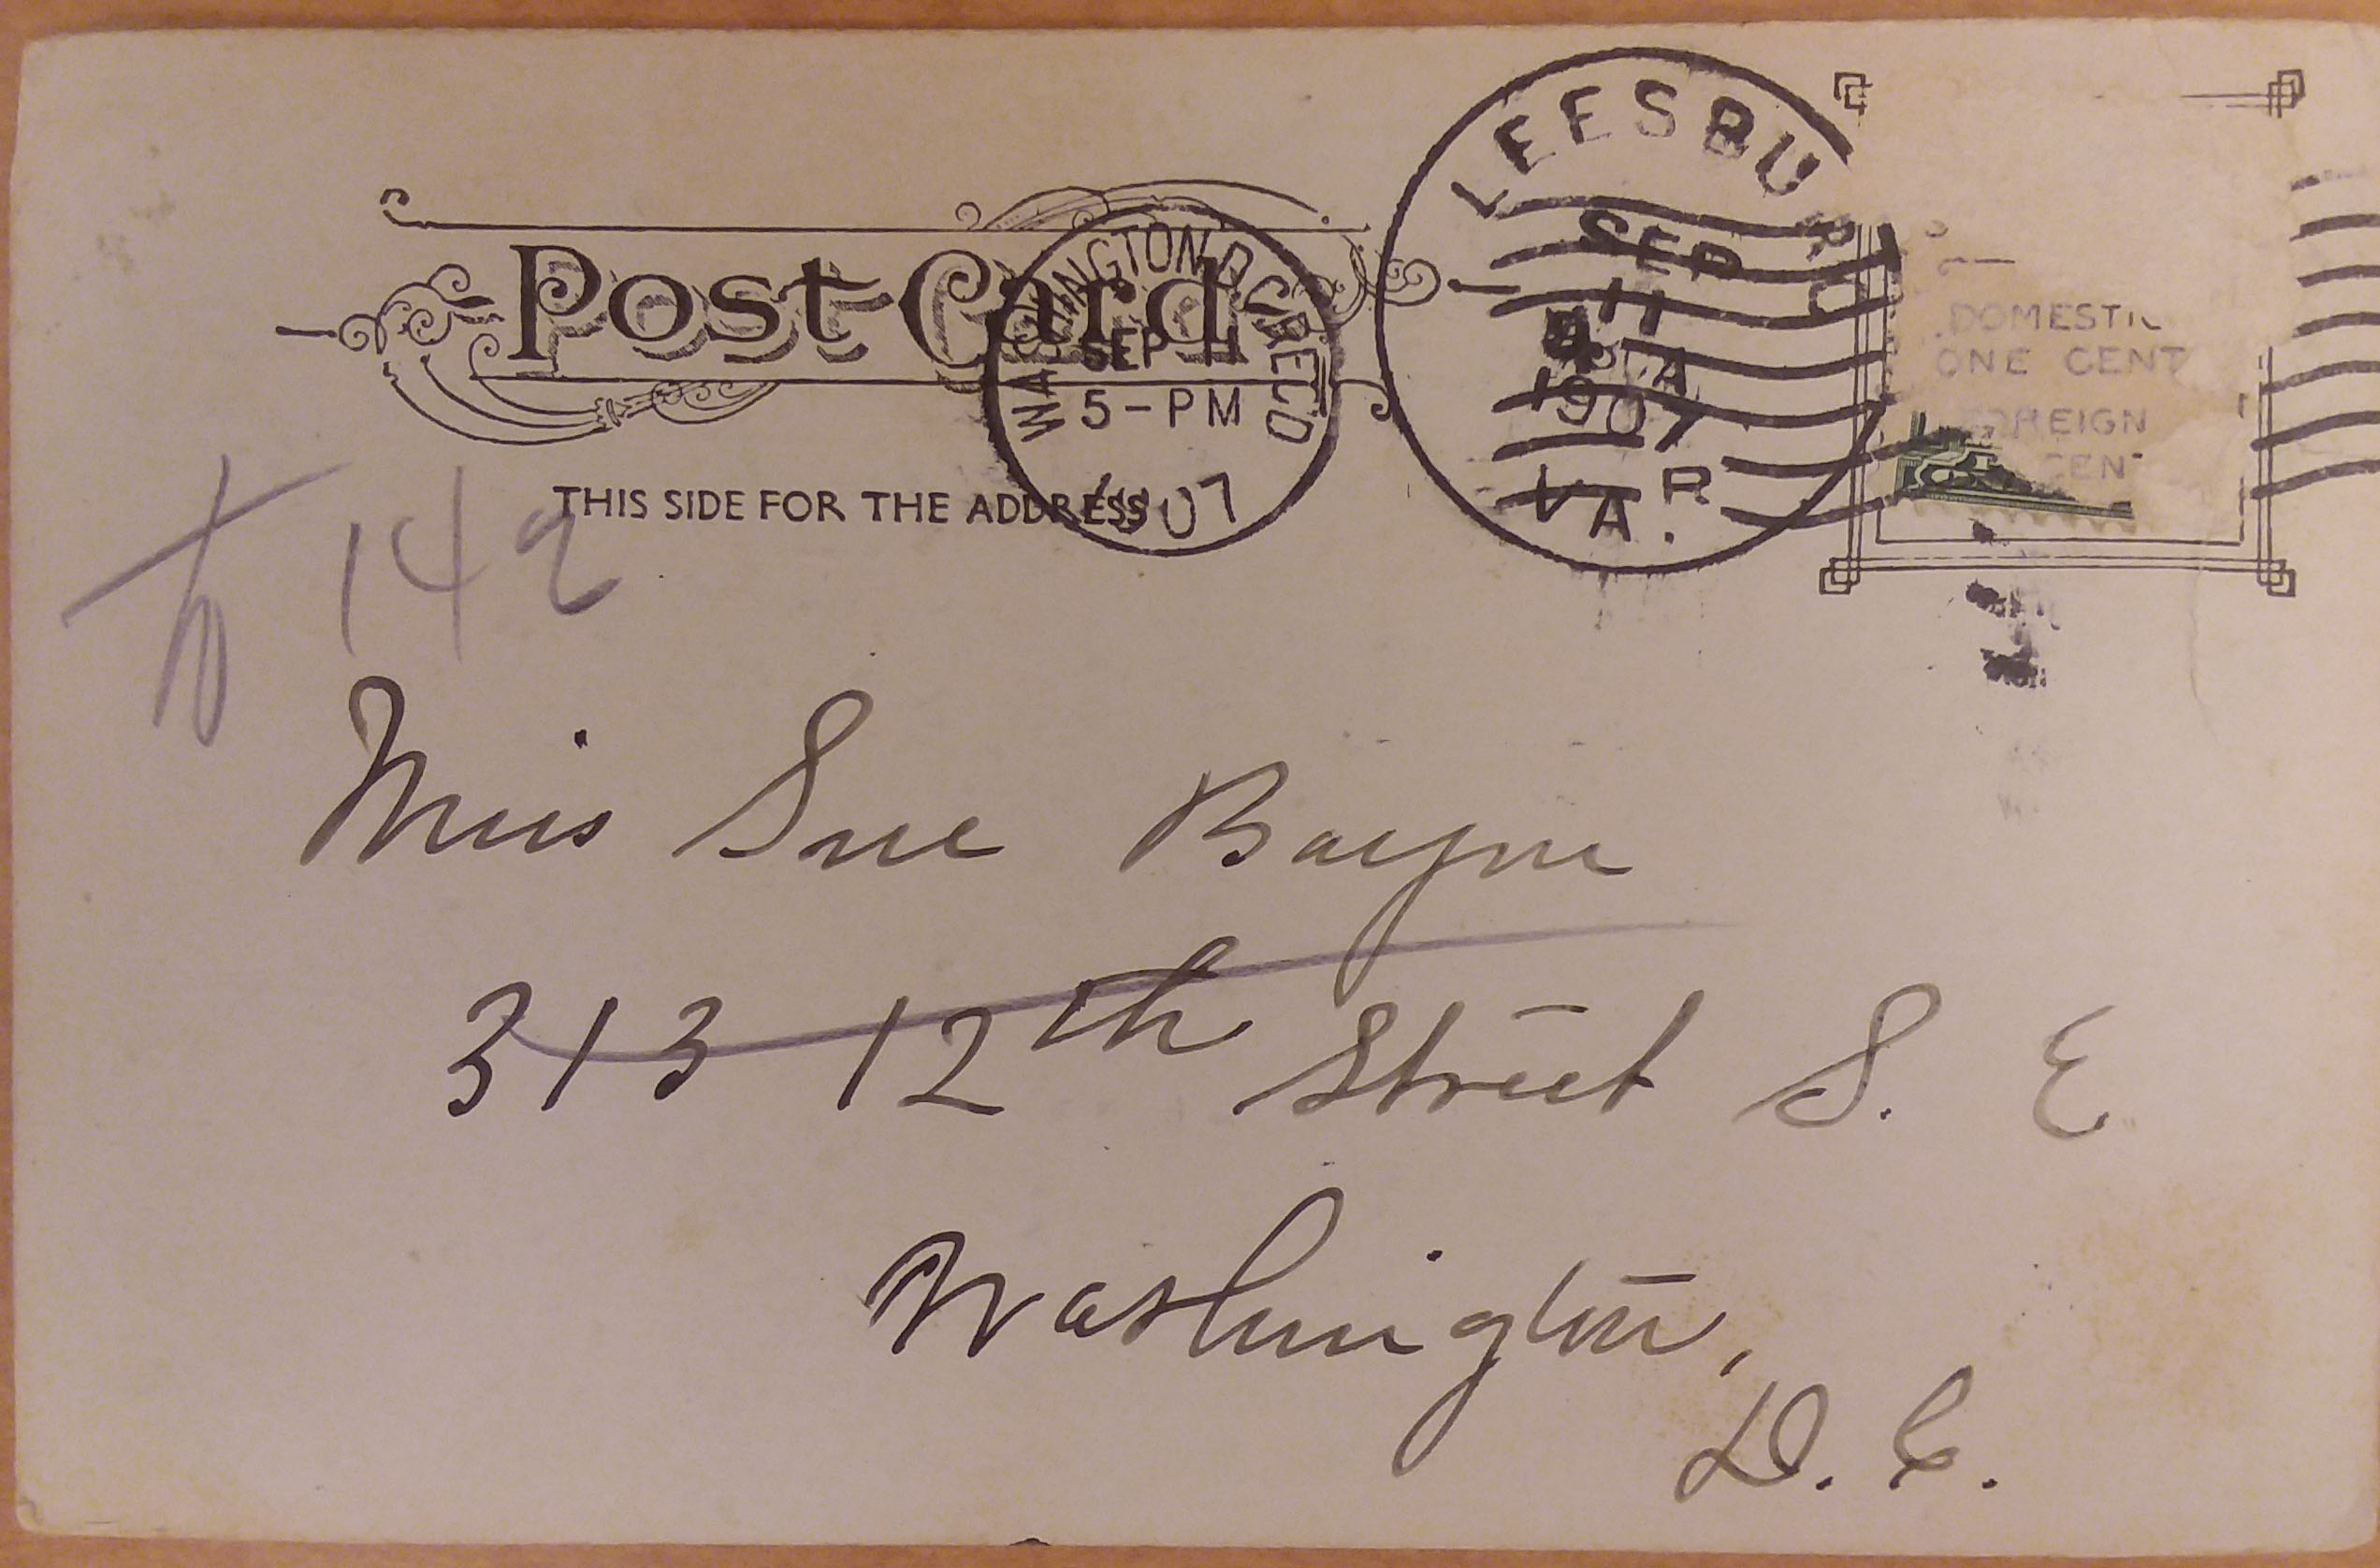 LEESBURG
SEP
11
1907
VA.
Post Card
WASHINGTON, D.C. RECD
SEP 11
5-PM
1907
DOMESTIC
ONE CENT
FOREIGN
CEN
THIS SIDE FOR THE ADDRESS
142
Miss Sue Bayne
313 12th Street S. E
Washington,
D. C.